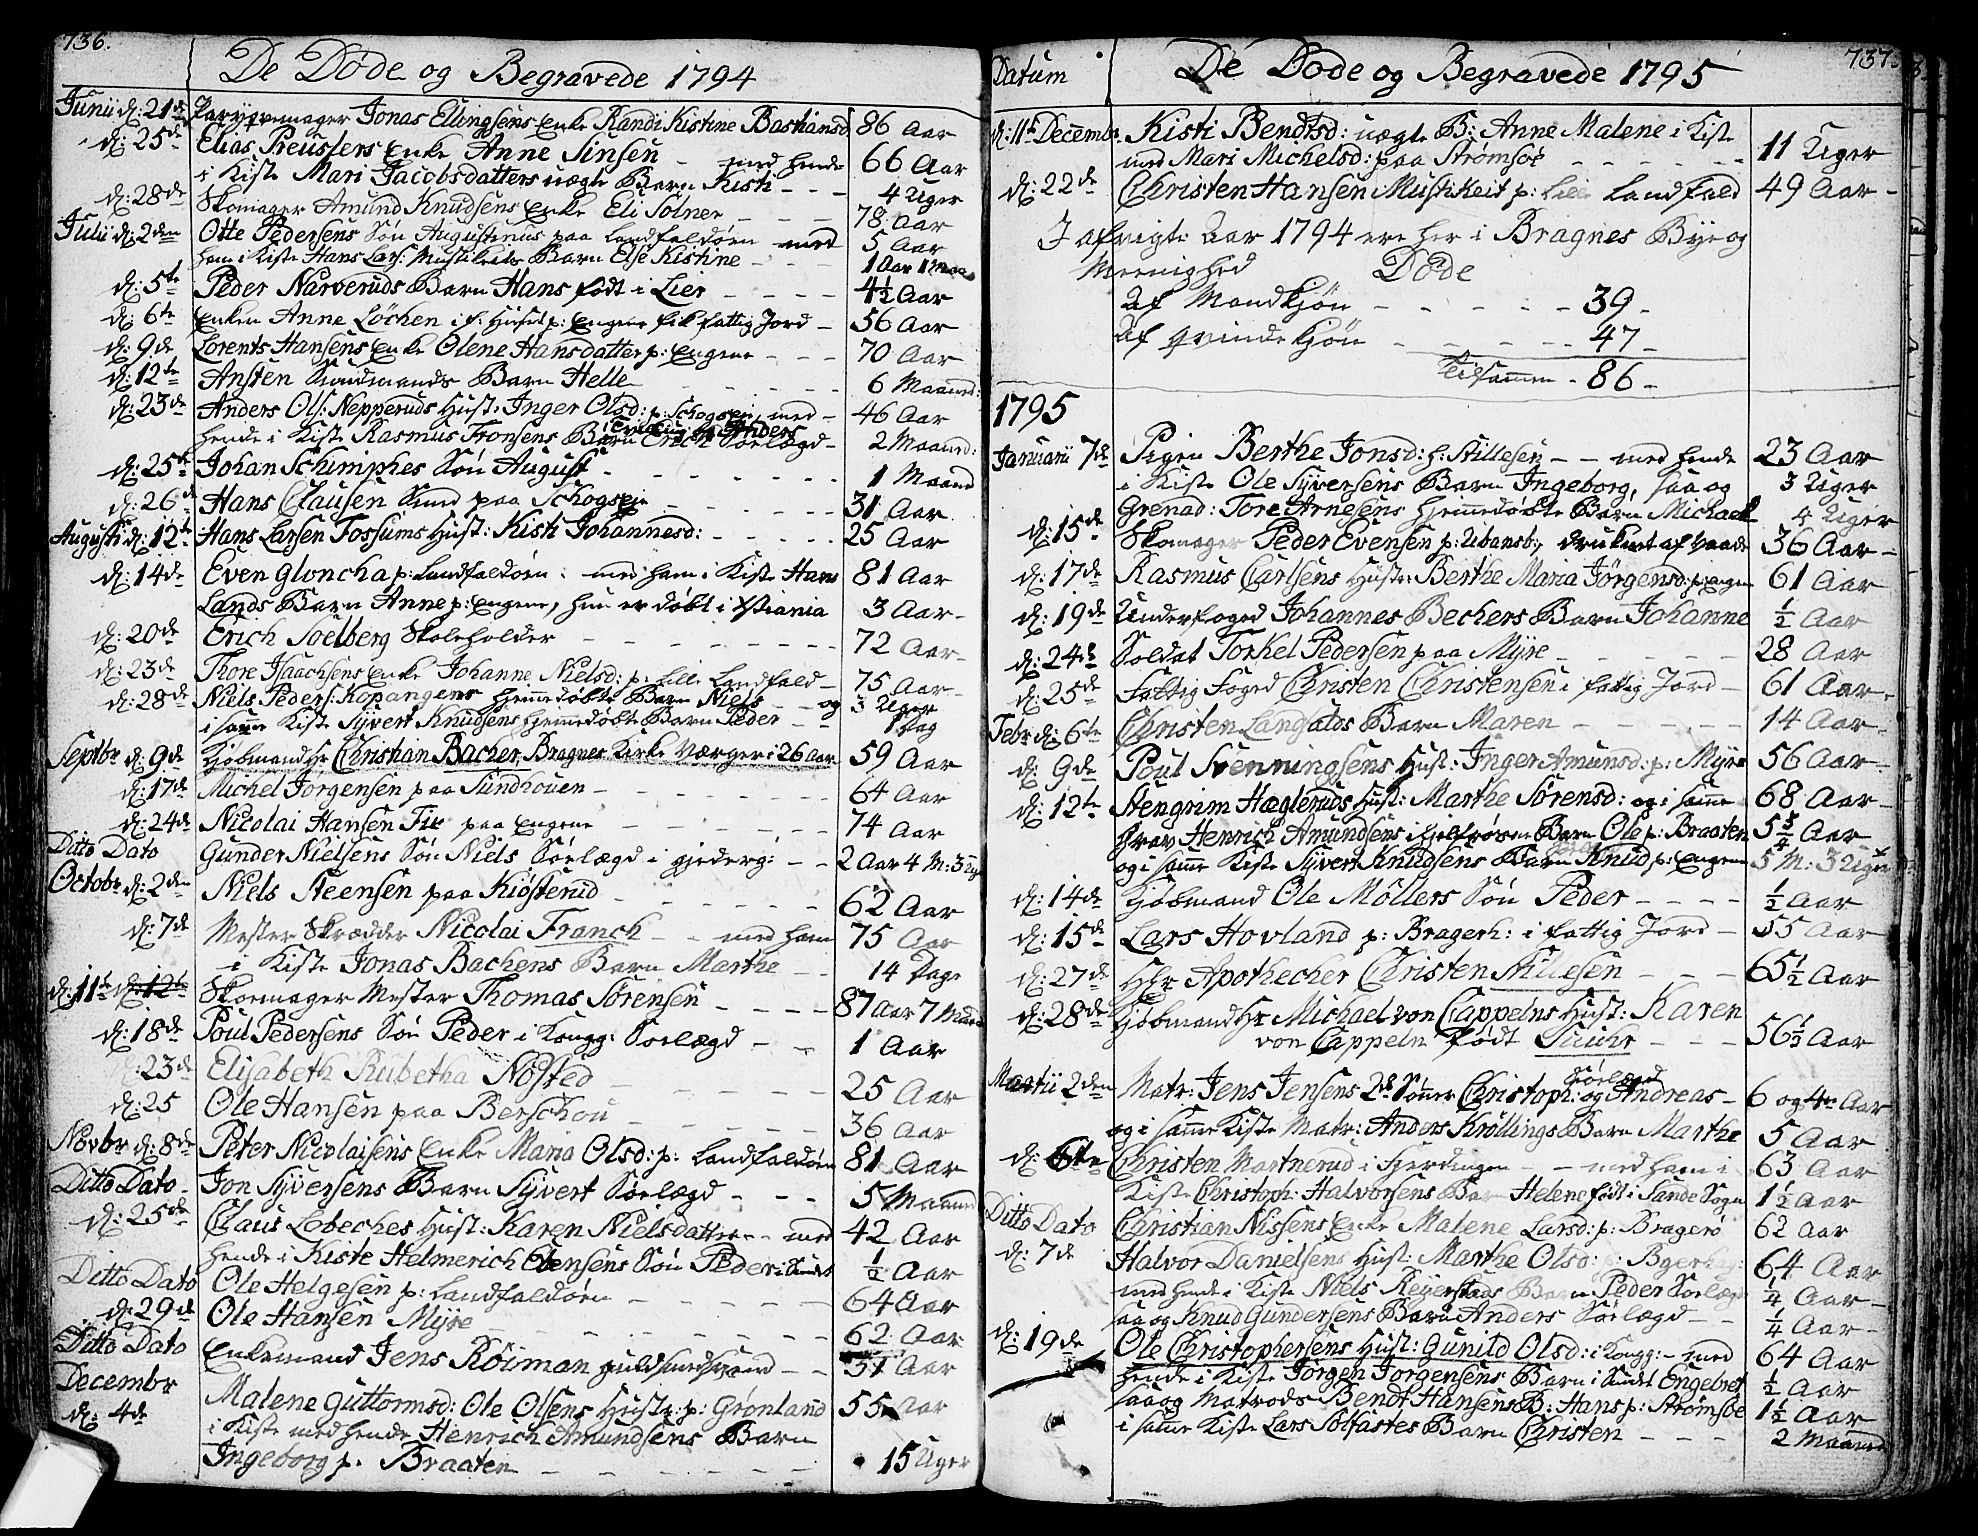 736.
De Døde og Begravede 1794
Junii d: 21de Jonas Ellingsens Enke Randi Kistine Bastiansd 86 Aar
d: 25de Elias Preuslers Enke Anne Jinsen - med hende 66 Aar
i Kiste Mari Jacobsdatters uægte Barn Kisti - - - 4 Uger
d: 28de Skomager Amund Knudsens Enke Eli Solner - - - 78 Aar
Julii d: 2den Otte Pedersens Søn Augustinus paa Landfaldøen med 5 Aar
ham i Kiste Hans Lars: Muskileits Barn Else Kistine - - - 1 Aar 1 Maa
d: 5te Peder Narveruds Barn Hans født i Lier - - - - 4½ Aar
d: 6te Enken Anne Løchen i f: Huset p: Engene fik fattig Jord - 56 Aar
d: 9de Lorents Hansens Enke Olene Hansdatter p: Engene - - - 70 Aar
d: 12te Ansten Kudmands Barn Helle - - - - 6 Maaned:
d: 23de Anders Ols: Nepperuds Hust: Inger Olsd: p: Schogsen, med - 46 Aar
hende i Kiste Rasmus Fronsens Barn Erich Sørlægd - 2 Maaned:
d: 25te Johan Schimphes Søn August - - - - - 1 Maaned
d: 26de Hans Clausen Smed paa Schogsen - - - - 31 Aar
Augusti d: 12te Hans Larsen Fossums Hust: Kisti Johannesd: - - - - 25 Aar
d: 14de Even Gloncha p: Landfaldøen: med ham i Kiste Hans 81 Aar
Lands Barn Anne p: Engene, hun er døbt i Xstiania 3 Aar -
d: 20de Erich Soelberg Skoleholder - - - - - 72 Aar -
d: 23de Thore Isaachsens Enke Johanne Nielsd: p: Lille Landfald - 75 Aar -
d: 28de Niels Peders: Kopangens hjemmedøbte Barn Niels - - og 3 Uger
i samme Kiste Syvert Knudsens hjemmedøbte Barn Peder - 1 Dag
Septbr d: 9de Kjøbmand Hr Christian Bacher, Bragnes Kirke Værger i 26 Aar 59 Aar
d: 17de Michel Jørgensen paa Sundhouen - - - - 64 Aar
d: 24de Nicolai Hansen Fir paa Engene - - - - 74 Aar
Ditto Dato Gunder Nielsens Søn Niels Sørlægd i gjederg: - - 2 Aar 4 M: 3 Ug
Octobr d: 2den Niels Steensen paa Kiøsterud - - - - - 62 Aar
d: 7de Mester Skræder Nicolai Franck - - med ham 75 Aar
i Kiste Jonas Bachens Barn Marthe - - 14 Dage
d: 11te d: 12te Skoemager Mester Thomas Sørensen - - - - 87 Aar 7 Maan
d: 18de Poul Pedersens Søn Peder i Kongg: Sørlægd - - 1 Aar
23de Elisabeth Rubetha Nøsted - - - - 25 Aar
d: 25 Ole Hansen paa Berschou - - - - 36 Aar
Novbr d: 8de Peter Nicolaisens Enke Maria Olsd: p: Landfaldøen 81 Aar
Ditto Dato - Jon Syversens Barn Syvert Sørlægd - - - 5 Maaned
d: 25de Claus Lobeches Hust: Karen Nielsdatter - - med 42 Aar
hende i Kiste Helmerich Olensens Søn Peder i Sundet ½ Aar
Ditto Dato Ole Helgesen p: Landfaldøen - - - - 64 Aar
d: 29de Ole Hansen Myre - - - - - 62 Aar
Ditto Dato Enkemand Jens Røiman guldsmedsvend - - 51 Aar
Decembr
d: 4de Malene Guttormsd: Ole Olsens Hust: p: Grønland 55 Aar
i Kiste med hende Henrich Amundsens Barn
Ingeborg p: Braaten - - - - - 15 Uger
737.
Datum De Døde og Begravede 1795
d: 11te Decembr. Kisti Bendtsd: uægte B: Anne Malene i Kiste 11 Uger
med Mari Michelsd: paa Strømsøe - - - - -
d: 22de Christen Hansen Mushkeit p: Lille Landfald 49 Aar -
I afvigte Aar 1794 ere her i Bragnes Bye og
Meenighed Døde
Af Mandkjøn - - - - - 39 -
Af Qvindekjøn - - - - - 47 -
Tilsammen - 86 -
1795
Januarii 7de Pigen Berthe Jonsd: h: Stillesen - - med hende 23 Aar
i Kiste Ole Syversens Barn Ingeborg, saa og 3 Uger
Grenad: Tore Arnesens hjemmedøbte Barn Michael 4 Uger
d: 15de Skomager Peder Evensen p: Ubansb:, druknet af Vaade 36 Aar -
d: 17de Rasmus Carlsens Hust: Berthe Maria Jørgensd: p: Engen 61 Aar
d: 19de Underfoged Johannes Bechers Barn Johanne ½ Aar
d: 24de Soldat Torkel Pedersen paa Myre - - - - 28 Aar
d: 25de Fattig Foged Christen Christensen i fattig Jord - 61 Aar -
Febr d: 6te Christen Langfalds Barn Maren - - - - 14 Aar -
d: 9de Poul Svenningsens Hust: Inger Amunsd: p: Myre 56 Aar -
d: 12te Stengrim Hægleruds Hust: Marthe Sørensd: og i samme 68 Aar -
Grav Henrich Amundsens Barn Ole p: Braaten 5¾ Aar -
og i samme Kiste Syvert Knudsens Barn Knud p: Engene 5 M: 3 Uger
d: 14de Kjøbmand Ole Møllers Søn Peder - - - - ½ Aar
d: 15de Lars Hovland p: Bragerh: i fattig Jord - 55 Aar
d: 27de Hr Apothecher Christen Stillesen - - - 65½ Aar
d: 28de Kjøbmand Hr Michael von Cappelns Hust: Karen
von Cappeln født Suuhr - - - 56½ Aar
Martii 2den Matr: Jens Jensens 2de Sønner Christoph: og Andreas - Sørlægd 6 og 4 Aar
og i samme Kiste Matr: Anders Krøllings Barn Marthe 5 Aar
d: 6te Christen Martnerud i Fjerdingen - - med ham i 63 Aar
Kiste Christoph: Halvorsens Barn Helene født i Sande Sogn 1½ Aar
Ditto Dato Christian Nissens Enke Malene Larsd: p: Bragerø 62 Aar
d: 7de Halvor Danielsens Hust: Marthe Olsd: 64 Aar
med hende i Kiste Niels Reyerstads Barn Peder Sørlægd ¼ Aar -
saa og Knud Gundersens Barn Anders Sørlægd - - ¼ Aar -
d: 19de Ole Christophersens Hust: Gunild Olsd: i Kongg: - med 64 Aar
hende i Kiste Jørgen Jørgensens Barn i Sundet Engebret ½ Aar
saa og Matrods Bendt Hansens B: Hans p: Strømsøe 1½ Aar
i samme Kiste Lars Solfastes Barn Christen - - - - 2 Maaned